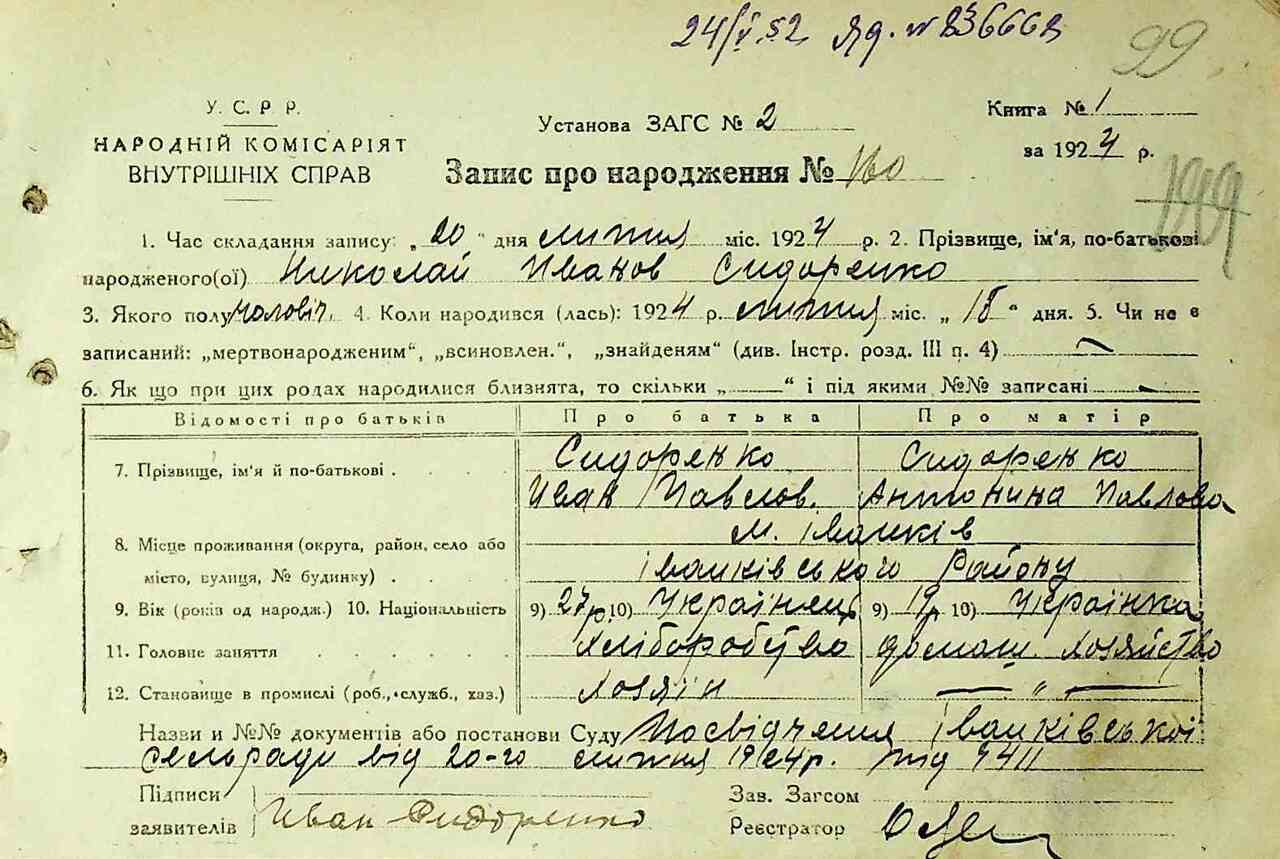 24/V.52 Яд. № 836668
99
У. С. Р. Р.
НАРОДНІЙ КОМІСАРІЯТ
ВНУТРІШНІХ СПРАВ
Установа ЗАГС № 2
Запис про народження № 160
Книга № 1
за 1924 р.
1. Час складання запису: „20" дня липня міс. 1924 р. 2. Прізвище, ім'я, по-батькові
народженого(ої) Николай Иванов Сидоренко
3. Якого полу чоловіч. 4. Коли народився (лась): 1924 р. липня міс. „18" дня. 5. Чи не є
записаний: „мертвонародженим", „всиновлен.", „знайденям" (див. Інстр. розд. III п. 4)
6. Як що при цих родах народилися близнята, то скільки „ " і під якими №№ записані
Відомості про батьків Про батька Про матір
7. Прізвище, ім'я й по-батькові . . . . Сидоренко Сидоренко
Иван Павлов. Антонина Павлова
8. Місце проживання (округа, район, село або м. Іванків
місто, вулиця, № будинку) . . . . Іванківського Району
9. Вік (років од народж.) 10. Національність 9) 27р. 10) Українець 9) 19р 10) Українка
11. Головне заняття . . . . . . Хліборобство домаш. хозяйство
12. Становище в промислі (роб., служб., хаз.) Хозяїн — " —
Назви и №№ документів або постанови Суду Посвідчення Іванківської
сельради від 20-го липня 1924р. під
Підписи
заявителів Иван Сидоренко
Зав. Загсом
Реєстратор